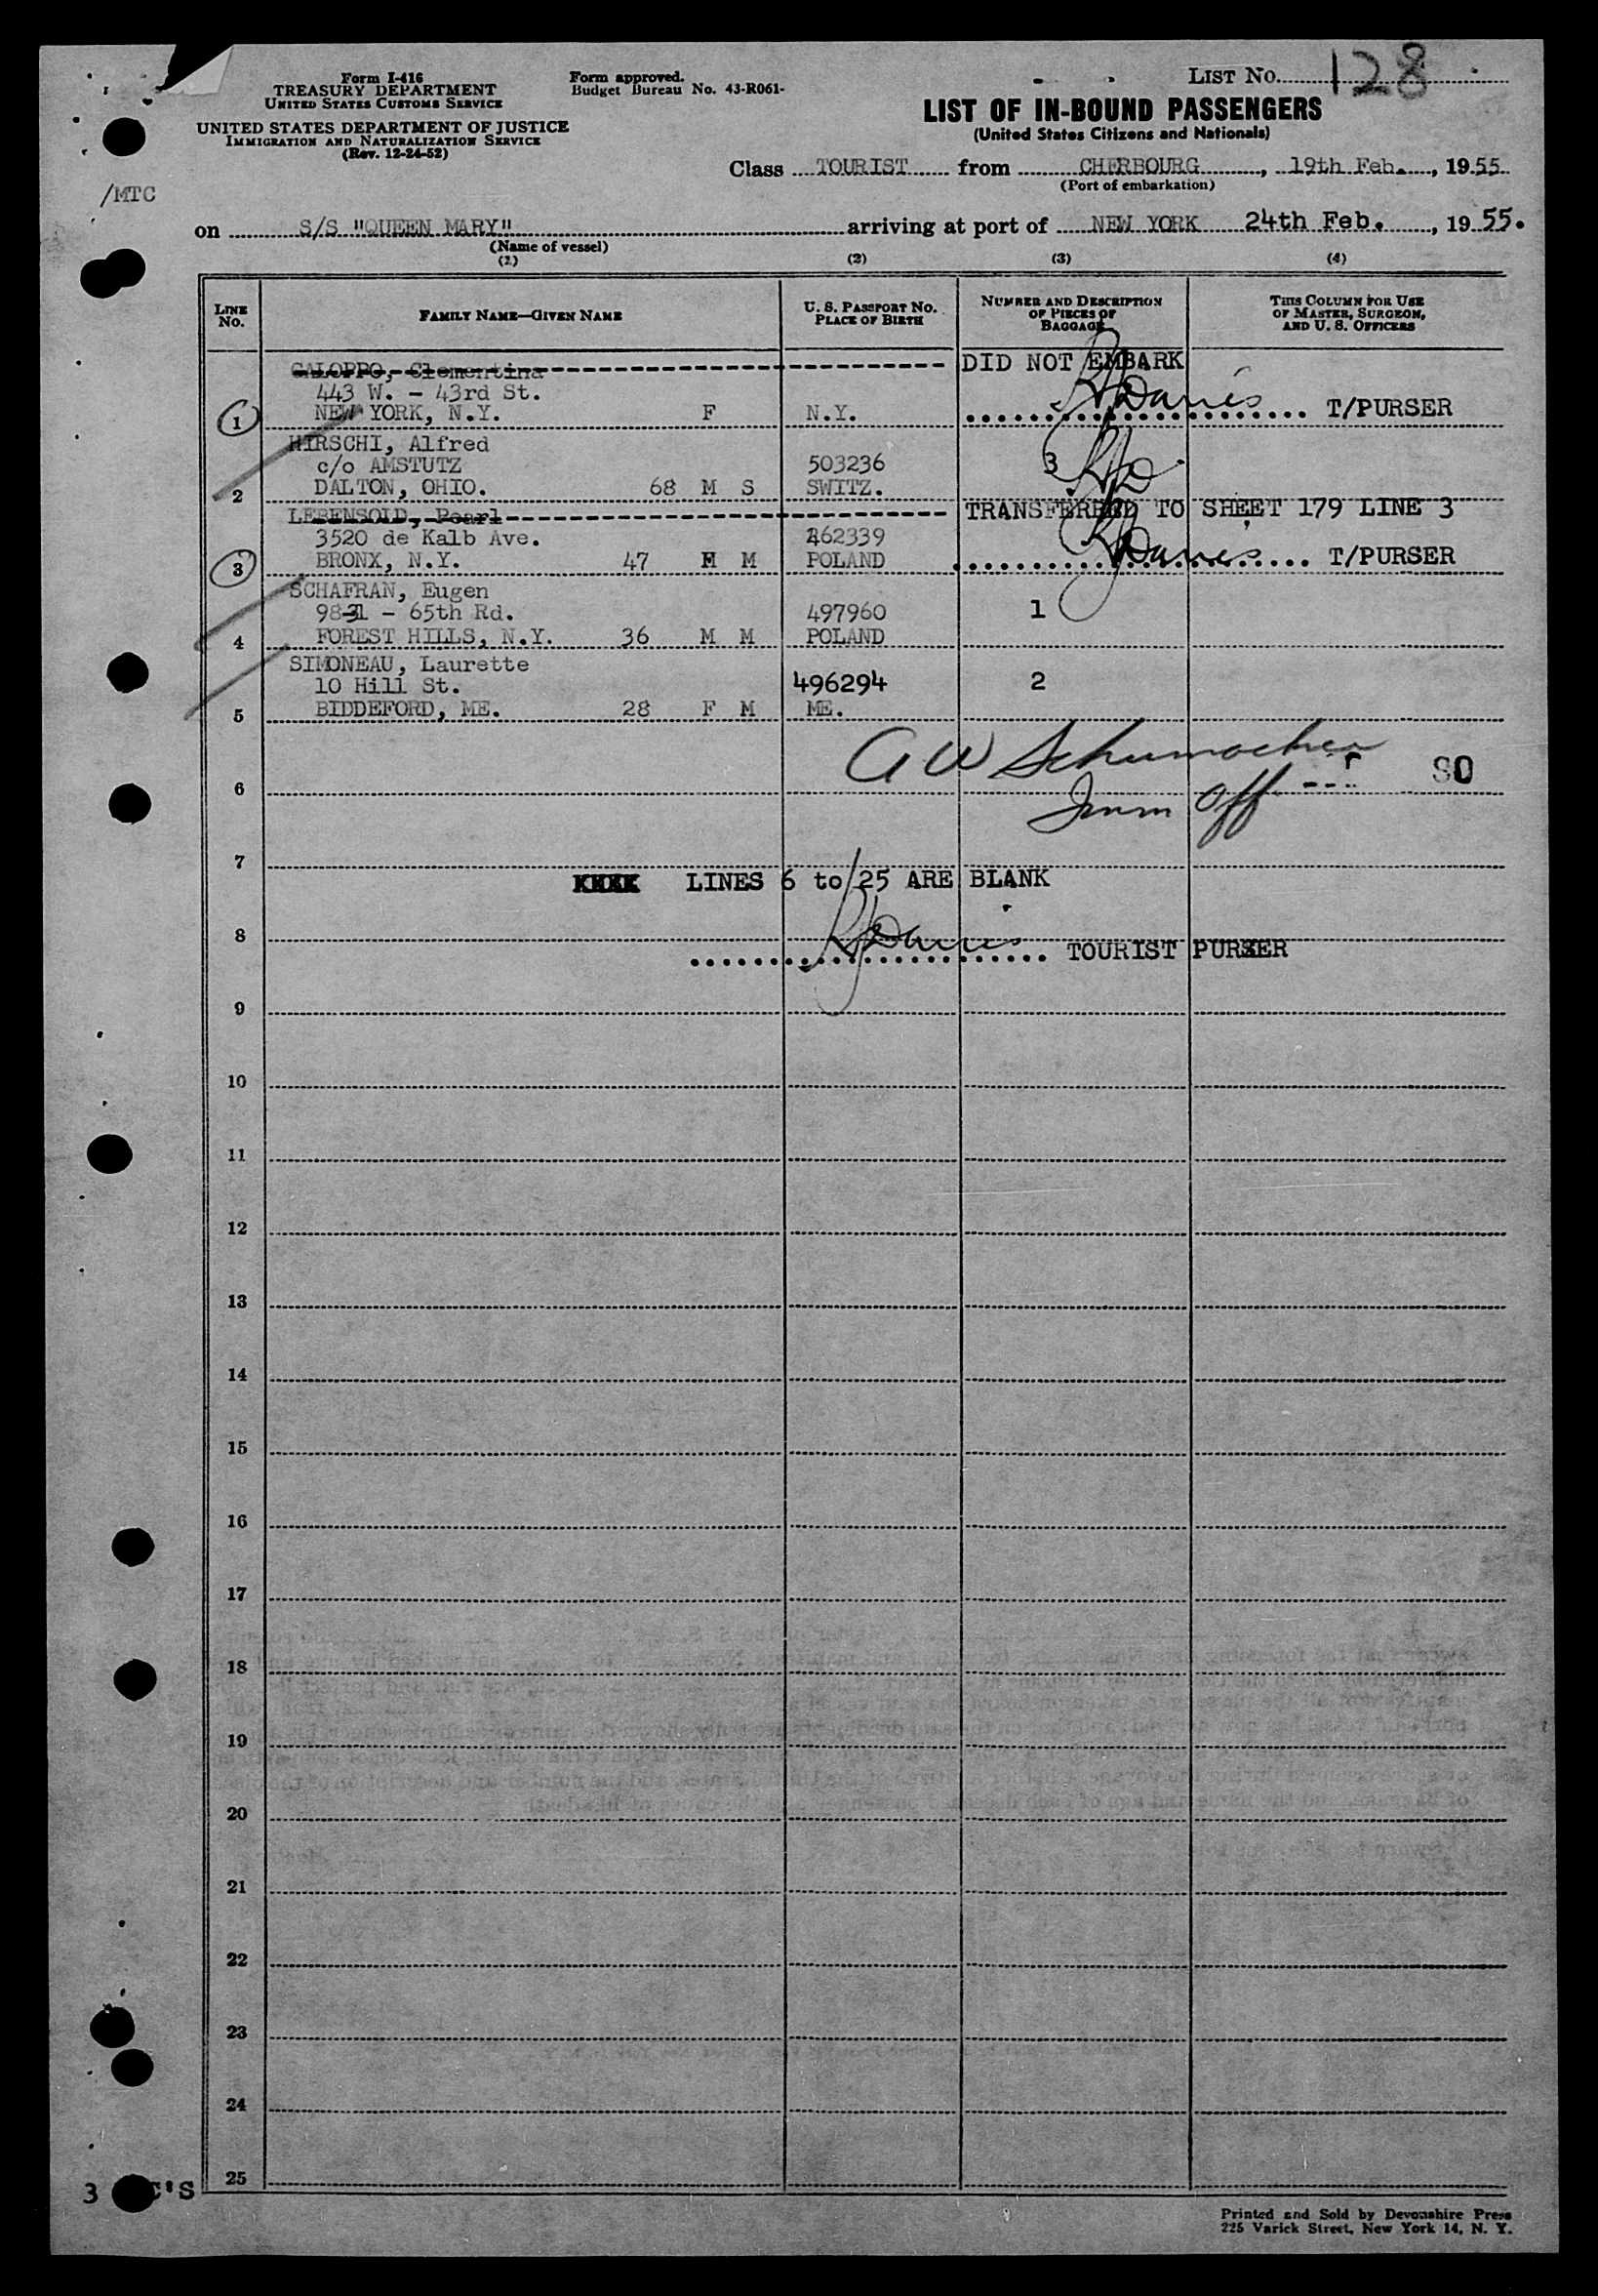 Form I-416
TREASURY DEPARTMENT
UNITED STATES CUSTOMS SERVICE
UNITED STATES DEPARTMENT OF JUSTICE
IMMIGRATION AND NATURALIZATION SERVICE
(Rev. 12-24-52)
Form approved.
Budget Bureau No. 43-R061-
LIST No. 128
LIST OF IN-BOUND PASSENGERS
(United States Citizens and Nationals)
/MTC
Class TOURIST from CHERBOURG, 19th Feb., 1955
(Port of embarkation)
on S/S "QUEEN MARY" arriving at port of NEW YORK 24th Feb., 1955.
(Name of vessel)
(1) (2) (3) (4)
LINE No. FAMILY NAME—GIVEN NAME U. S. PASSPORT No. PLACE OF BIRTH NUMBER AND DESCRIPTION OF PIECES OF BAGGAGE THIS COLUMN FOR USE OF MASTER, SURGEON, AND U. S. OFFICERS
GALOPPO, Clementina DID NOT EMBARK
443 W. - 43rd St.
1 NEW YORK, N.Y. F N.Y. RJDavies T/PURSER
HIRSCHI, Alfred
c/o AMSTUTZ 503236 3 RJD
2 DALTON, OHIO. 68 M S SWITZ.
LEBENSOLD, Pearl TRANSFERRED TO SHEET 179 LINE 3
3520 de Kalb Ave. 462339
3 BRONX, N.Y. 47 F M POLAND RJDavies T/PURSER
SCHAFRAN, Eugen
98-31 - 65th Rd. 497960 1
4 FOREST HILLS, N.Y. 36 M M POLAND
SIMONEAU, Laurette
10 Hill St. 496294 2
5 BIDDEFORD, ME. 28 F M ME.
A W Schumacher
6 Imm Off
7
LINES 6 to 25 ARE BLANK
8
RJDavies TOURIST PURSER
9
10
11
12
13
14
15
16
17
18
19
20
21
22
23
24
25
3 C'S
Printed and Sold by Devonshire Press
225 Varick Street, New York 14, N. Y.